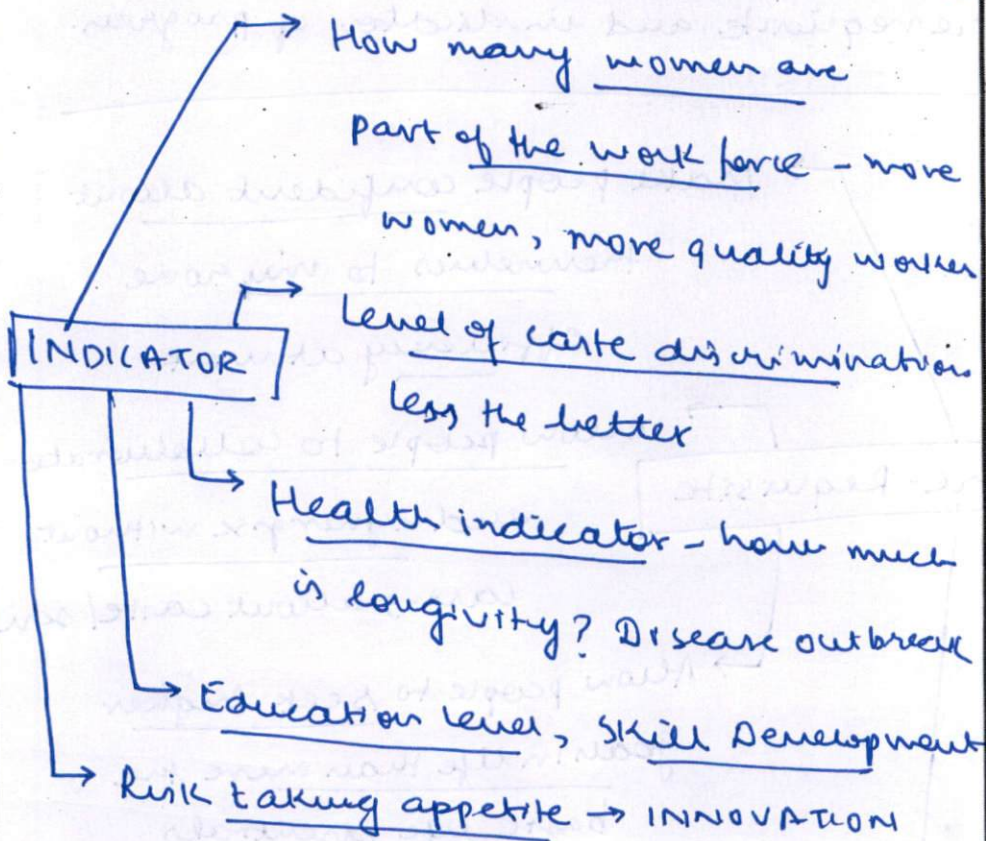 How many women are
part of the work force - more
women, more quality worker
Level of caste discrimination
less the better
INDICATOR
Health indicator - how much
is longivity? Disease outbreak
Education level, Skill Development
Risk taking appetite → INNOVATION